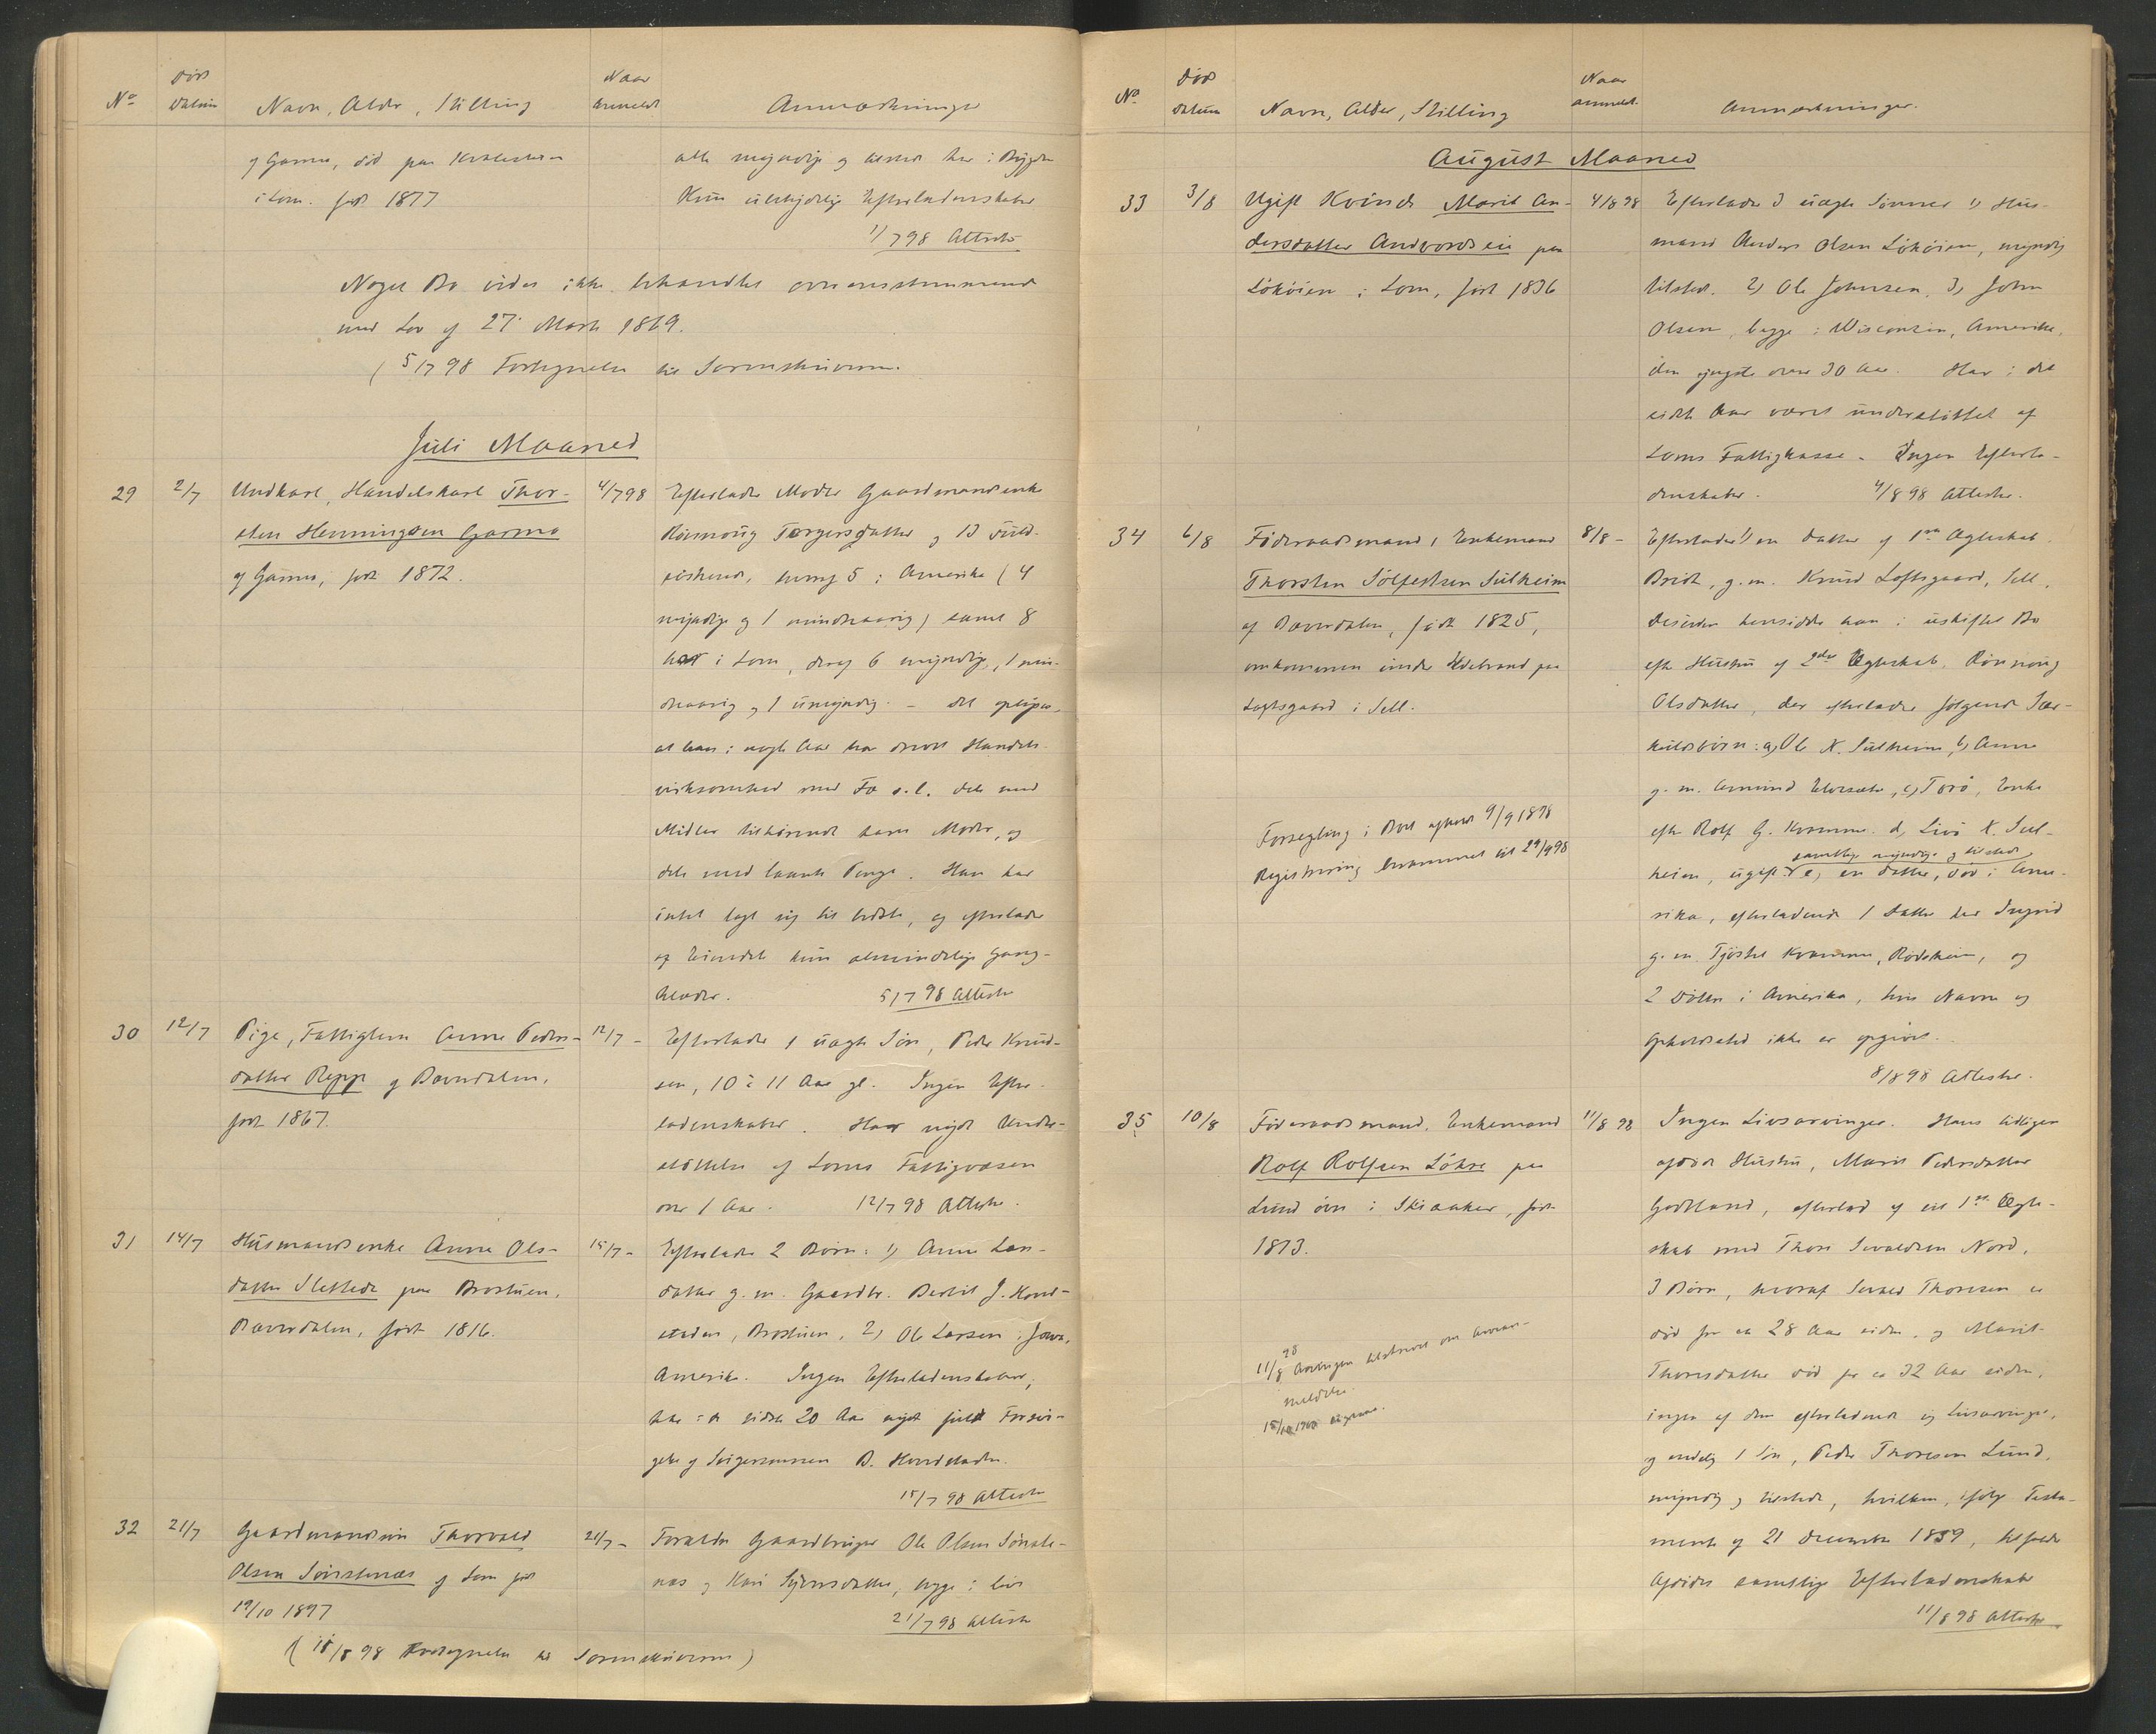 No
Død
Datum
Navn, Alder, Stilling
Naar
anmeldt
Anmærkninger
af Garmo, død paa Kvalestein
i Lom. født 1877
alle myndige og tilstede her i Bygden
Kun ubetydelige Efterladenskaber
1/7 98 Attesto
Noget Bo vides ikke behandlet overensstemmende
med Lov af 27. Marts 1869.
(5/7 98 Fortegnelse til Sorenskriveren.
Juli Maaned
29
2/7
Ungkarl, Handelskarl Thor-
sten Henningsen Garmo
af Garmo, født 1872.
4/7 98
Efterlader Moder Gaardmandsenke
Rønnoug Torgersdatter og 13 Fuld-
søskende, hvoraf 5 i Amerika (4
myndige og 1 mindreaarig) samt 8
her i Lom, deraf 6 myndige, 1 min-
dreaarig og 1 umyndig. – Det oplyses,
at han i nogle Aar har drevet Handels-
virksomhed med Fæ o.l. dels med
Midler tilhørende hans Moder, og
dels med laante Penge. Han har
intet lagt sig til bedste, og efterlader
af Eiendele kun almindelige Gang-
klæder.
5/7 98 Attesto
30
12/7
Pige, Fattiglem Anne Peders-
datter Repp af Bæverdalen,
født 1867.
12/7 –
Efterlader 1 uægte Søn, Peder Knud-
sen, 10 à 11 Aar gl. Ingen Efter-
ladenskaber. Har nydt Under-
støttelse af Loms Fattigvæsen
over 1 Aar.
12/7 98 Attesto.
31
14/7
Husmandsenke Anne Ols-
datter Slettede paa Brostuen,
Bæverdalen, født 1816.
15/7 –
Efterlader 2 Børn: 1) Anne Lars-
datter g.m. Gaardbr. Berlit J.
Brostuen, 2) Ole Larsen, Iowa,
Amerika. Ingen Efterladenskaber,
har i de sidste 20 Aar nydt fuld Forsør-
gelse af Svigersønnen B.
15/7 98 Attesto
32
21/7
Gaardmandssøn Thorvald
Olsen Sønstenæs af Lom født
19/10 1897
21/7 –
Forældre Gaardbruger Ole Olsen Sønste-
næs og Kari Syversdatter, begge i live
21/7 98 Attesto
(18/8 98 Fortegnelse til Sorenskriveren)
No
Død
Datum
Navn, Alder, Stilling
Naar
anmeldt.
Anmærkninger.
August Maaned
33
3/8
Ugift Kvinde Marit An-
dersdatter Andvordseie paa
Løkøien i Lom, født 1836
4/8 98
Efterlader 3 uægte Sønner 1) Hus-
mand Anders Olsen Løkøien, myndig
tilstede. 2) Ole Johnsen, 3) John
Olsen, begge i Wisconsin, Amerika,
den yngste over 30 Aar. Har i det
sidste Aar været understøttet af
Loms Fattigkasse. Ingen Efterla-
denskaber.
4/8 98 Attesto.
34
6/8
Føderaadsmand, Enkemand
Thorsten Sølfestsen Sulheim
af Bæverdalen, født 1825,
omkommen under Ildebrand paa
Loftsgaard i Sell.
Forsegling i Boet afholdt 9/9 1898
Registrering berammet til 29/9 98
8/8 –
Efterlader 1) en Datter af 1ste Ægteskab,
Brit, g.m. Knud Loftsgaard, Sell,
Desuden hensidder han i uskiftet Bo
efter Hustru af 2det Ægteskab, Rønnoug
Olsdatter, der efterlader følgende Sær-
kuldsbørn: a) Ole K. Sulheim, b) Anne
g.m. Amund Elvesæter, c) Torø, Enke
efter Rolf G. Kvamme. d) Livø K. Sul-
heim, ugift. samtlige myndige og tilstede
e) en Datter, død i Ame-
rika, efterladende 1 Datter her Ingrid
g.m. Tjøstel Kvamme, Rødsheim, og
2 Døtre i Amerika, hvis Navne og
Opholdssted ikke er opgivet.
8/8 98 Attesto.
35
10/8
Føderaadsmand, Enkemand
Rolf Rolfsen Løkre paa
Lund øvre i Skiaaker, født
1813.
11/8 98 Arvingen tilskrevet om Arvean-
meldelse.
11/8 98
Ingen Livsarvinger. Hans tidligere
afdøde Hustru, Marit Pedersdatter
Godtland, efterlod af sit 1ste Ægte-
skab med Thore Sevaldsen Nord,
3 Børn, hvoraf Sevald Thoresen er
død for ca 28 Aar siden, og Marit
Thoresdatter død for ca 32 Aar siden,
ingen af dem efterladende sig Livsarvinger,
og endelig 1 Søn, Peder Thoresen Lund,
myndig og tilstede, hvilken, ifølge Testa-
mente af 21 December 1859, tilfalder
Afdødes samtlige Efterladenskaber
11/8 98 Attesto